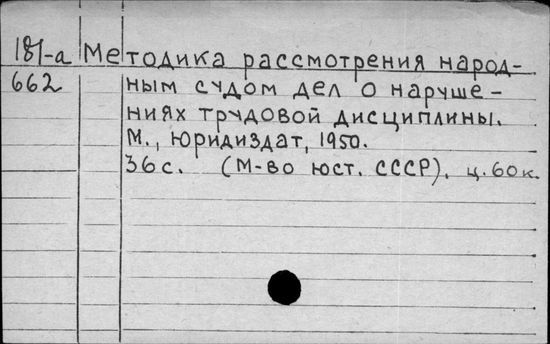 181-а Методика рассмотрения народ-
662 ным судом дел о наруше-
ниях трудовой дисциплины.
М., Юридиздат, 1950.
36 с. (М-во юст. СССР). ц. 60 к.